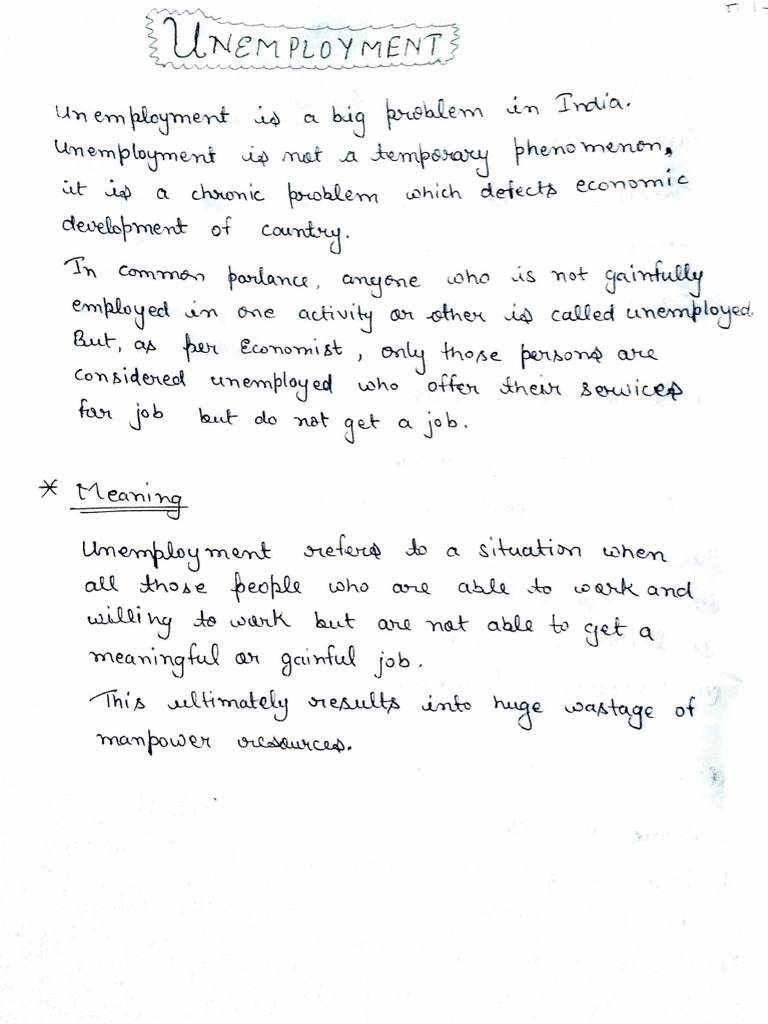 UNEMPLOYMENT
Unemployment is a big problem in India.
Unemployment is not a temporary phenomenon,
it is a chronic problem which defects economic
development of country.
In common parlance, anyone who is not gainfully
employed in one activity or other is called unemployed.
But, as per Economist, only those persons are
considered unemployed who offer their services
for job but do not get a job.
* Meaning
Unemployment refers to a situation when
all those people who are able to work and
willing to work but are not able to get a
meaningful or gainful job.
This ultimately results into huge wastage of
manpower resources.